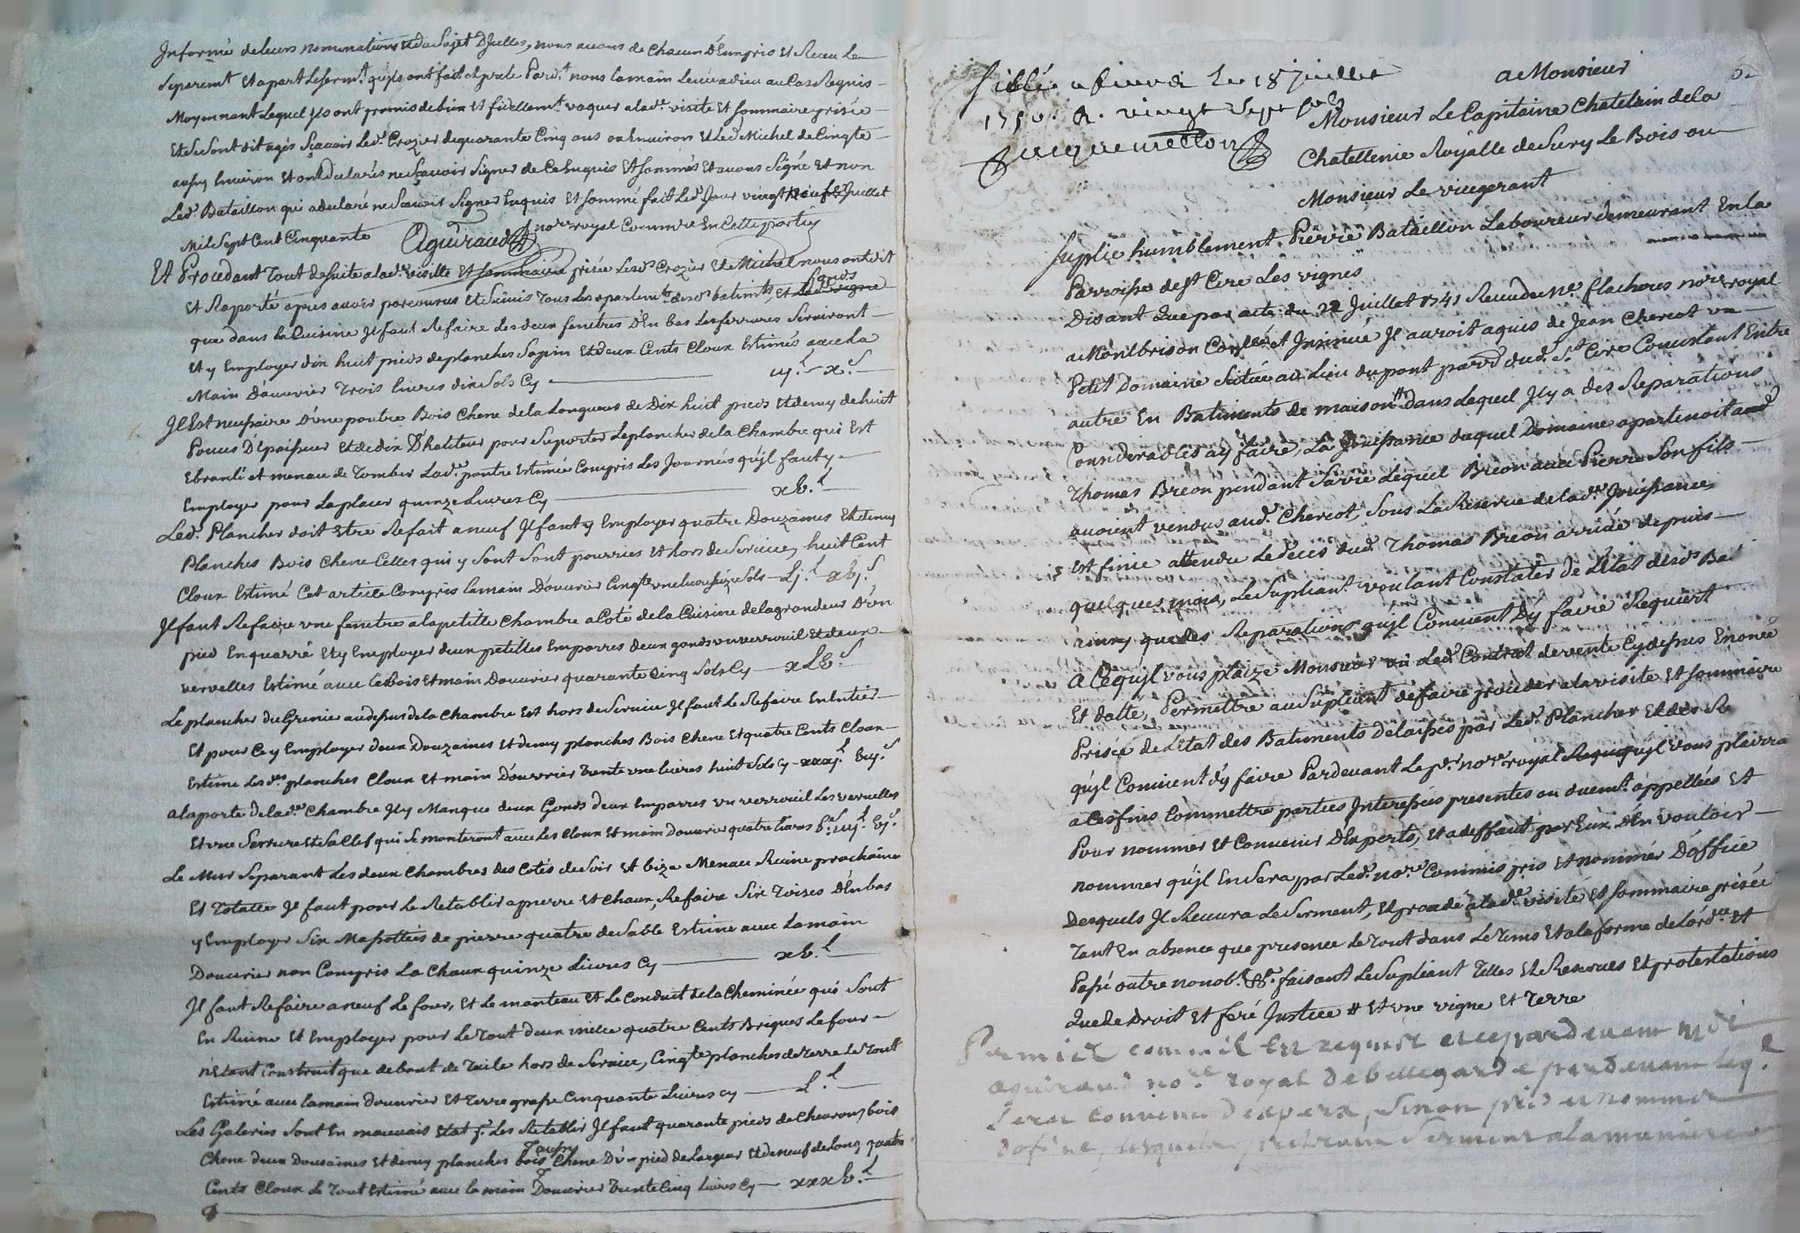 Informé de leurs nominations et du sujet d'jcelles, nous avons de chacun d'Eux pris et Receu le
separemt et apart le sermt. qu'jls ont fait et preté Pardt. nous la main levée a dieu au cas Requis
Moyennant lequel jls ont promis de bien et fidellemt. vaquer a lade. visite et sommaire prisée
Et se sont dit agés sçavoir led. Crozier de quarante Cinq ans ou Environ et led. Michel de Cinqte
aussy Environ Et ont déclarés ne sçavoir signer de ce Enquis Et sommés Et avons signé Et non
Led. Bataillon qui a declaré ne sçavoir signer Enquis et sommé fait led. Jour vingt neuf Juillet
Mil sept Cent Cinquante Aguiraud nore royal Commre En Cette partie
Et Procedant Tout de suite a lade visitte et sommaire prisée lesds. Crozier et Michel nous ont dit
Et Raporté apres avoir parcourus Et suivis Tous les apartemts. desds batimts, Et fonds
que dans la Cuisine Jl faut Refaire les deux fenetres d'En bas les ferrures serviront
Et y Employer dix huit pieds de planches sapin Et deux Cents Cloux Estimés avec la
Main Douvrier Trois livres dix sols Cy iij.l x.s
Jl Est necessaire d'une poutre Bois Chene de la longueur de Dix huit pieds Et demy de huit
Pouces D'épaisseur Et de dix D'hauteur pour suporter le plancher de la Chambre qui Est
Ebranlé et menace de Tomber Lade. poutre Estimée Compris les Journés qu'jl faut y
Employer pour la placer quinze Livres Cy xv.l
Led. Plancher doit Etre Refait a neuf Jl faut y Employer quatre Douzaines Et demy
Planches Bois Chene Celles qui y sont sont pourries Et hors de service, huit Cent
Cloux Estimé Cet article Compris la main Douvrier Cinqte une livre seize sols Lj.l xvj.s
Jl faut Refaire une fenetre a la petitte Chambre a Coté de la Cuisine de la grandeur D'un
pied En quarré Et y Employer deux petittes Emparres deux gonds un verrouil Et deux
vervelles Estimé avec le bois Et main Douvrier quarante Cinq sols Cy xLv.s
Le plancher du Grenier au dessus de la Chambre Est hors de service Jl faut le Refaire En Entier
Et pour Ce y Employer deux Douzaines Et demy planches Bois Chene Et quatre Cents Cloux
Estimé lesds. planches Cloux Et main D'ouvrier Trente une livres huit sols Cy xxxj.l viij.s
a la porte de lade. Chambre Jl y Manque deux Gonds deux Emparres un verrouil Les vervelles
Et une serrure Et sa Clef qui se monteront avec les Cloux Et main Douvrier quatre livres iiij.l
Le Mur separant les deux Chambres des Cotés de soir Et bize Menace Ruine prochaine
Et Totalle Jl faut pour le Retablir a pierre Et Chaux, Refaire six Toises D'En bas
y Employer six Massottées de pierre quatre de sable Estimé avec la main
Douvrier non Compris La Chaux quinze Livres Cy xv.l
Jl faut Refaire a neuf le four, Et le manteau Et le Conduit de la Cheminée qui sont
En Ruine Et Employer pour le Tout deux mille quatre Cents Briques le four
n'étant Construit que de bout de Tuile hors de service, Cinqte planches de Terre Le Tout
Estimé avec la main douvrier Et Terre grasse Cinquante Livres cy L.l
Les Galeries sont En mauvais Etat pr. les Retablir Jl faut quarante pieds de chevrons, bois
Chene deux Douzaines Et demy planches aussy bois Chene D'un pied de Largeur Et de neuf de long quatre
Cents Cloux le Tout Estimé avec la main Douvrier Trente Cinq Livres Cy xxxv.l
a Monsieur
Monsieur Le Capitaine Chatelain de la
Chatellenie Royalle de Sury Le Bois ou
Monsieur Le vicegerant
le 18 juillet
1750. R. vingt sept sols
Jacquemetton
Suplie humblement Pierre Bataillon Laboureur demeurant En la
Parroisse de st Cire Les vignes
Disant que par acte du 22 Juillet 1741 Receu de me. flacheres nore royal
a Montbrison Conllé et Jnsinué Jl auroit aquis de Jean Cheriot un
Petit Domaine Scitué au Lieu du pont parr. dud. St. Cire Consistant Entre
autre En Batiments de maison # dans lequel Jl y a des Reparations
Considerables a y faire, La Jouissance duquel Domaine apartenoit aud.
Thomas Breon pendant sa vie Lequel Breon avec Pierre son fils
avoient vendus aud. Cheriot, sous la Reserve de lade. Jouissance,
Est finie attendu Le déces dud. Thomas Breon arrivé depuis
quelques mois, Le supliant voulant Constater de L'Etat desds Ba
timts que des Reparations qu'jl Convient d'y faire Requiert
A Ce qu'jl vous plaize Monsieur vû led. Contrat de vente Cy dessus Enoncé
Et datté, Permettre au supliant de faire proceder a la visite Et sommaire
Prisée de L'Etat des Batiments delaissés par led. Plancher Et des Re
qu'jl Convient d'y faire Pardevant Le pr. nore royal Requis qu'jl vous plairra
a Ces fins Commettre parties Jnteressées presentes ou duemt. appellées Et
Pour nommer Et Convenir D'Experts, Et a deffaut par Eux D'En vouloir
nommer qu'jl En sera par led. nore Commis pris Et nommés D'office
Desquels Jl Recevra Le serment, Et procedé a lade. visite Et sommaire prisée
Tant En absence que presence le Tout dans Le Tems Et a la forme de L'ordce. Et
Passé outre nonobt. &c. faisant Le supliant Telles Et Reserves Et protestations
Que de Droit et feré Justice # Et une vigne Et Terre
Permis commis En requis pardevant me
aguiraud nore royal de bellegarde pardevant leql.
sera convenu d'expers, sinon pris et nommés
d'office, lesquels preteront serment a la maniere